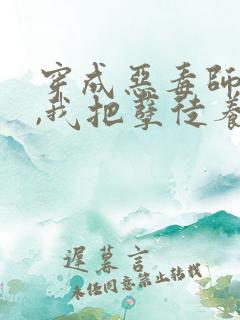 穿成惡毒師
,我把孽徒養
遲暮言
未经同意禁止转载